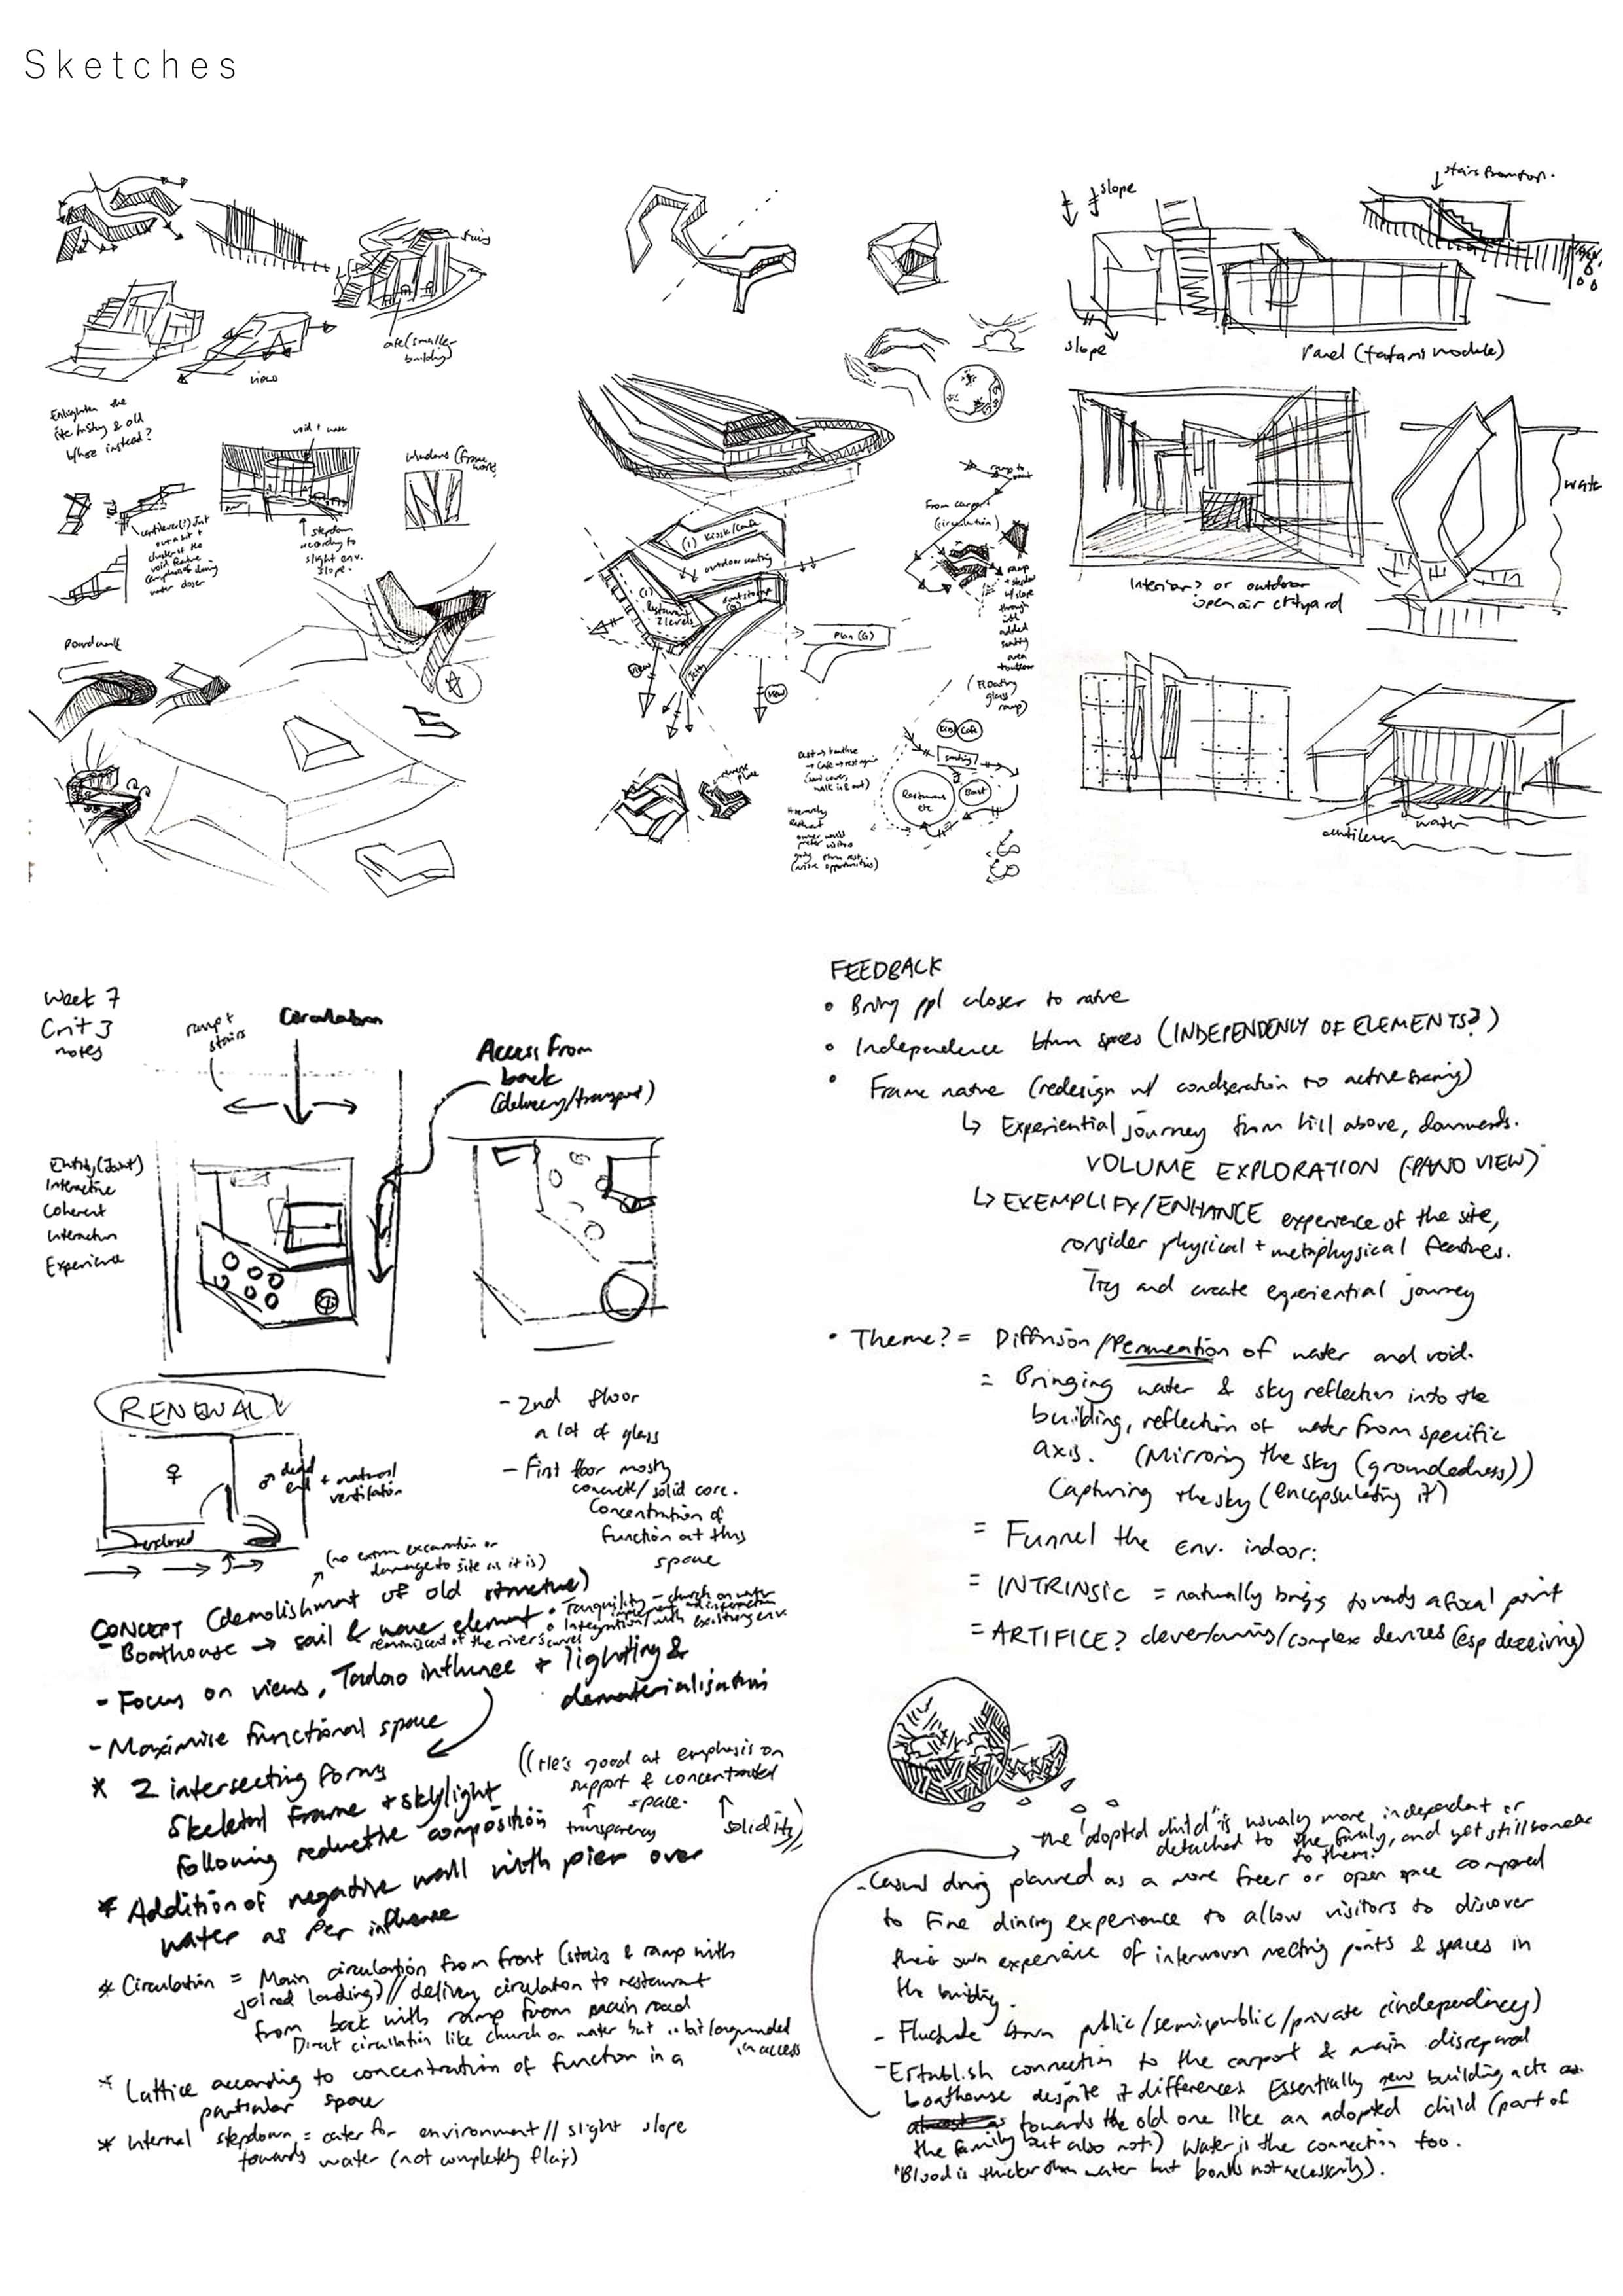 Sketches
string
cafe (smaller building)
view
Enlighten the
site history & old
b/hse instead?
void +
windows (frame
work)
stepdown
according to
slight env.
slope.
Boardwalk
(1) Kiosk/Cafe
outdoor seating
(1)
Restaurant
2 levels
Jetty
view
view
Plan (G)
ramp to
From carport
(circulation)
ramp
through
with
added
seating
area
(Floating
glass
ramp)
Kiosk Cafe
seating
Restaurant
etc
Boat
reverse
place
slope
stairs from top.
slope
Panel (tatami module)
Interior? or outdoor
open air ctyard
water
cantilever
water
Week 7
Crit 3
notes
ramp +
stairs
Circulation
Access from
back
(delivery/transport)
Entity (Joint)
Interactive
Coherent
Interaction
Experience
RENEWAL
dead
end + natural
ventilation
enclosed
- 2nd floor
a lot of glass
- First floor mostly
concrete/solid core.
Concentration of
function at this
space
(no extra excavation or
damage to site as it is)
CONCEPT (demolishment of old structure)
- Boathouse → sail & wave element
reminiscent of the river's curves
• Tranquility - church on water
• Integration/with existing env.
- Focus on views, Tadao influence + lighting &
dematerialisation
- Maximise functional space
* 2 intersecting forms
Skeletal frame + skylight
following reductive composition
((He's good at emphasis on
support & concentrated
space.
transparency
solidity)
* Addition of negative wall with pier over
water as per influence
* Circulation = Main circulation from front (stairs & ramp with
joined landing) // delivery circulation to restaurant
from back with ramp from main road
Direct circulation like church on water but a bit longwinded
in access
* Lattice according to concentration of function in a
particular space
* Internal stepdown = cater for environment // slight slope
towards water (not completely flat)
FEEDBACK
• Bring ppl closer to nature
• Independence btwn spaces (INDEPENDENCY OF ELEMENTS?)
• Frame nature (redesign w/ consideration to active framing)
↳ Experiential journey from hill above, downwards.
VOLUME EXPLORATION (PANO VIEW)
↳ EXEMPLIFY/ENHANCE experience of the site,
consider physical + metaphysical features.
Try and create experiential journey
• Theme? = Diffusion/Permeation of water and void.
= Bringing water & sky reflection into the
building, reflection of water from specific
axis. (Mirroring the sky (groundedness))
Capturing the sky (encapsulating it)
= Funnel the env. indoor:
= INTRINSIC = naturally brings towards a focal point
= ARTIFICE? clever/cunning/complex devices (esp deceiving)
→ The "adopted child" is usually more independent or
detached to the family, and yet still
to them.
- Casual dining planned as a more freer or open space compared
to fine dining experience to allow visitors to discover
their own experience of interwoven meeting points & spaces in
the building.
- Fluctuate btwn public/semipublic/private (independency)
- Establish connection to the carport & main
boathouse despite it differences. Essentially new building acts as
towards the old one like an adopted child (part of
the family but also not.) Water is the connection too.
"Blood is thicker than water but bonds not necessarily).